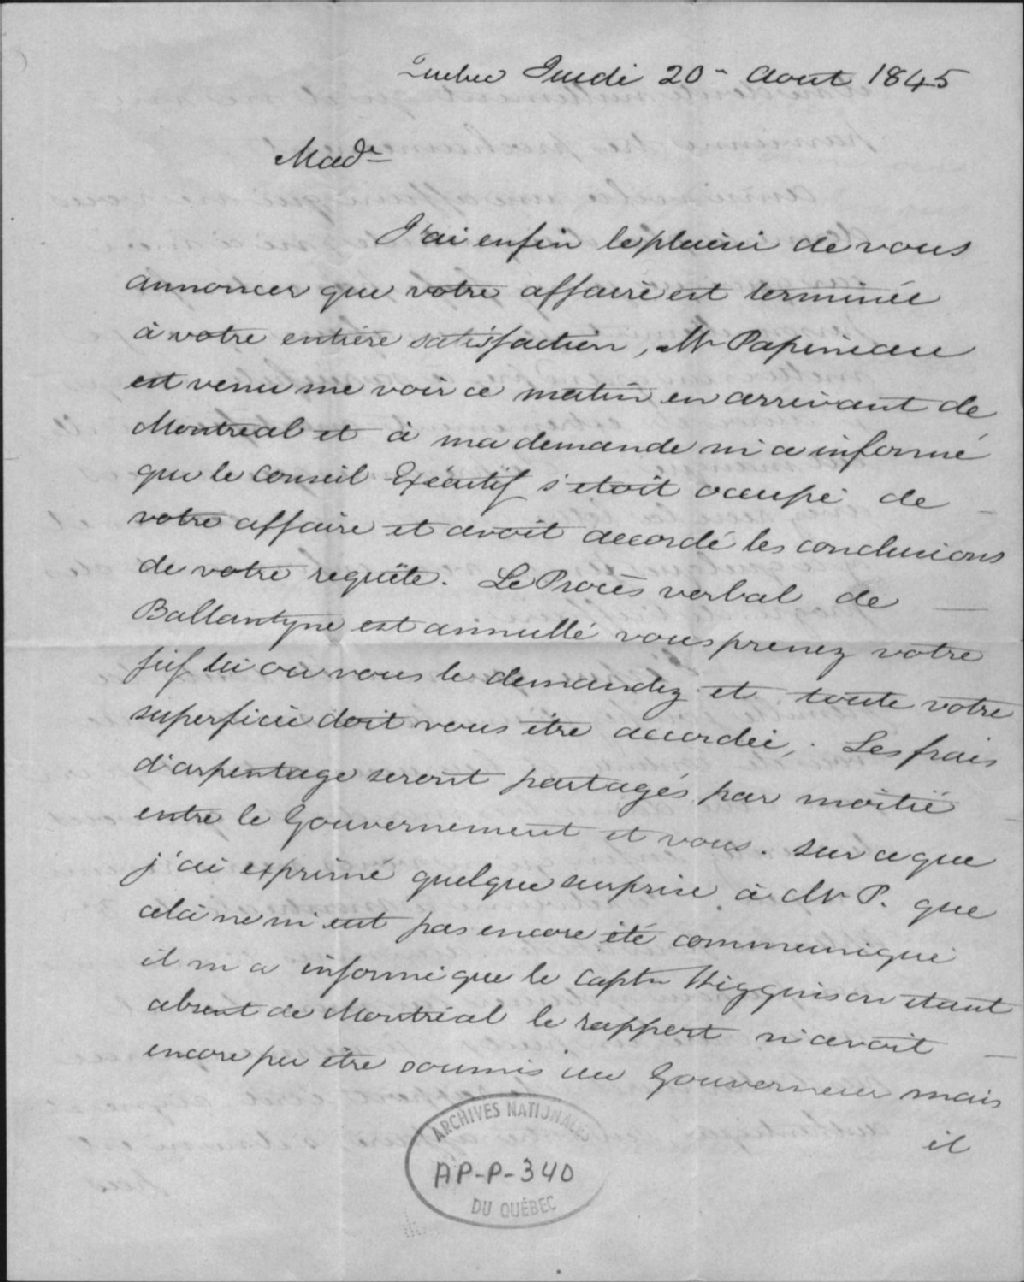 Quebec Jeudi 20 - Aout 1845
Made
J'ai enfin le plaisir de vous
annoncer que votre affaire est terminée
à votre entière satisfaction, Mr Papineau
est venu me voir ce matin en arrivant de
Montreal et à ma demande m'a informé
que le Conseil Executif s'etoit occupé de
votre affaire et avoit accordé les conclusions
de votre requête. Le Procès verbal de
Ballantyne est annullé vous prenez votre
fief là ou vous le demandez et toute votre
superficie doit vous être accordée, . Les frais
d'arpentage seront partagés par moitié
entre le Gouvernement et vous. Sur ce que
j'ai exprimé quelque surprise à Mr P. que
cela ne m'eut pas encore été communiqué
il m'a informé que le Captn Higginson etant
absent de Montréal le rapport n'avoit
encore pu être soumis au Gouverneur mais
il
ARCHIVES NATIONALES
AP-P-340
DU QUÉBEC